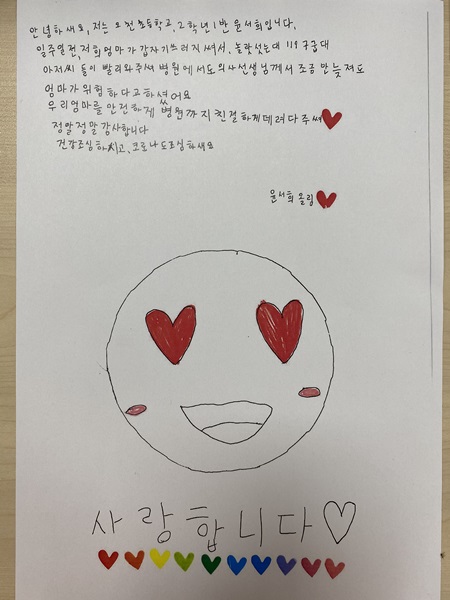 안녕하세요, 저는 오천초등학교, 2학년 1반 윤서희입니다.
일주일전, 저희 엄마가 갑자기 쓰러지셔서, 놀랐섯는데 119 구급대
아저씨 들이 빨리와주셔 병원에서도 의사선생님께서 조금 만 늦져도
엄마가 위험하다고 하셨어요
우리엄마를 안전하게 병원까지 친절하게데려다주셔❤
정말정말감사합니다
건강조심하시고, 코로나도조심하세요
윤서희 올림❤
사랑합니다♡